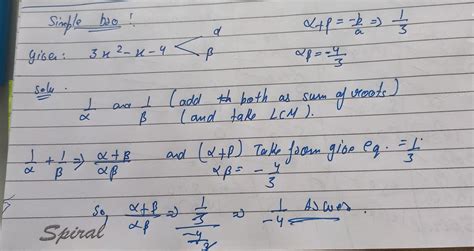 Simple bro!
α+β = -b/a ⇒ 1/3
Given: 3x² - x - 4 < α β
αβ = -4/3
Solu.
1/α and 1/β (add th both as sum of roots)
(and take LCM).
1/α + 1/β ⇒ α+β/αβ and (α+β) Take form give eq. = 1/3
αβ = -4/3
So, α+β/αβ ⇒ 1/3 / -4/3 ⇒ 1/-4 Answer.
Spiral